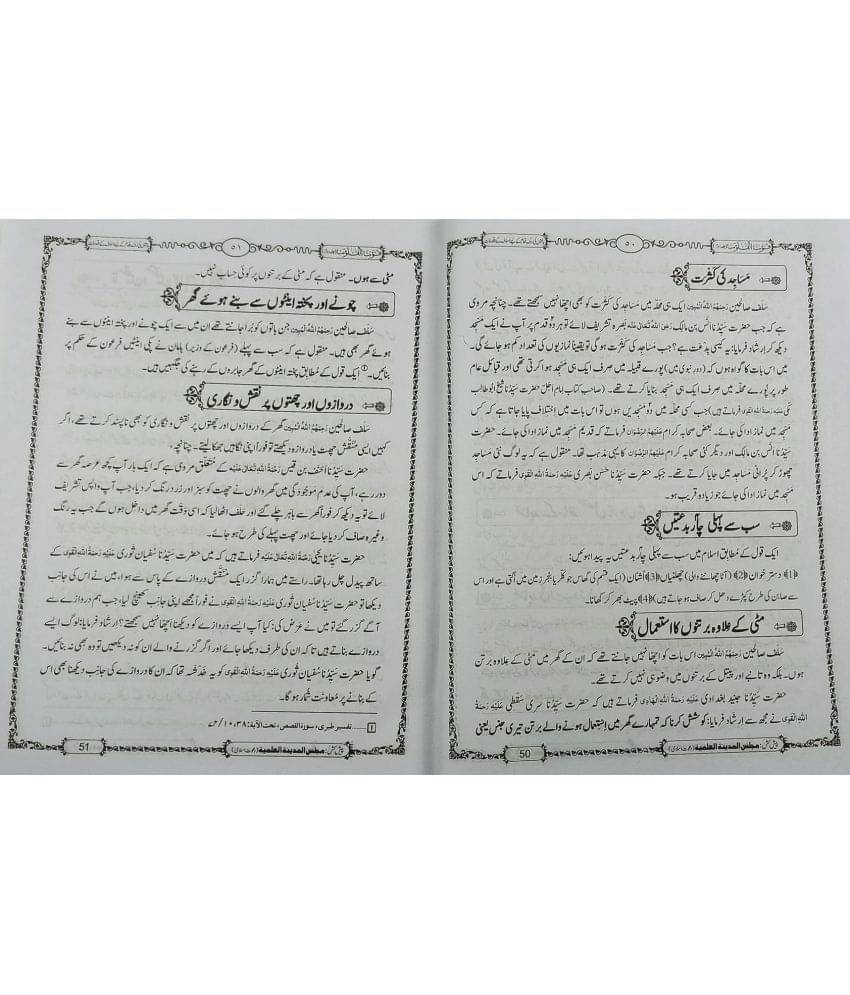 ۵۰
مساجد کی کثرت
سَلَف صالحین رَحِمَهُمُ اللهُ الْمُبِیْن ایک ہی محلہ میں مساجد کی کثرت کو بھی اچھا نہیں سمجھتے تھے۔ چنانچہ مروی
ہے کہ جب حضرت سیِّدُنا انس بن مالک رَضِیَ اللهُ تَعَالٰی عَنْہ بصرہ تشریف لائے تو ہر دو قدم پر آپ نے ایک مسجد
دیکھ کر ارشاد فرمایا: یہ کیسی بدعت ہے؟ جب مساجد کی کثرت ہو گی تو یقیناً نمازیوں کی تعداد کم ہو جائے گی۔
میں اس بات کا گواہ ہوں کہ (دورِ نبوی میں) پورے قبیلہ میں صرف ایک ہی مسجد ہوا کرتی تھی اور قبائل عام
طور پر پورے محلہ میں صرف ایک ہی مسجد بنایا کرتے تھے۔ (صاحبِ کتاب امام اجل حضرت سیِّدُنا شیخ ابوطالب
مکی فرماتے ہیں) جب کسی محلہ میں دو مسجدیں ہوں تو اس بات میں اختلاف پایا جاتا ہے کہ کس
مسجد میں نماز ادا کی جائے۔ بعض صحابہ کرام عَلَیْہِمُ الرِّضْوَان فرماتے کہ قدیم مسجد میں نماز ادا کی جائے۔ حضرت
سیِّدُنا انس بن مالک اور دیگر کئی صحابہ کرام عَلَیْہِمُ الرِّضْوَان کا یہی مذہب تھا۔ منقول ہے کہ یہ لوگ نئی مساجد
چھوڑ کر پرانی مساجد میں جایا کرتے تھے۔ جبکہ حضرت سیِّدُنا حسن بصری عَلَیْہِ رَحْمَةُ اللهِ الْقَوِی فرماتے کہ اس
مسجد میں نماز ادا کی جائے جو زیادہ قریب ہو۔
سب سے پہلی چار بدعتیں
ایک قول کے مطابق اسلام میں سب سے پہلی چار بدعتیں یہ پیدا ہوئیں:
﴿1﴾ دستر خوان ﴿2﴾ (آٹا چھاننے والی) چھلنیاں ﴿3﴾ اُشنان (ایک قسم کی گھاس جو بنجر زمین میں اُگتی ہے اور اس
سے صابن کی طرح کپڑے دھل کر صاف ہو جاتے ہیں) ﴿4﴾ پیٹ بھر کر کھانا۔
مٹی کے علاوہ برتنوں کا استعمال
سَلَف صالحین رَحِمَهُمُ اللهُ الْمُبِیْن اس بات کو اچھا نہیں جانتے تھے کہ ان کے گھر میں مٹی کے علاوہ برتن
ہوں۔ بلکہ وہ تانبے اور پیتل کے برتنوں میں وضو بھی نہیں کرتے تھے۔
حضرت سیِّدُنا جنید بغدادی عَلَیْہِ رَحْمَةُ اللهِ الْہَادِی فرماتے ہیں کہ حضرت سیِّدُنا سری سقطی عَلَیْہِ رَحْمَةُ
اللهِ الْقَوِی نے مجھ سے ارشاد فرمایا: کوشش کرنا کہ تمہارے گھر میں استعمال ہونے والے برتن تیری جنس یعنی
پیش کش: مجلس المدینة العلمیة (دعوتِ اسلامی)
50
۵۱
مٹی سے ہوں۔ منقول ہے کہ مٹی کے برتنوں پر کوئی حساب نہیں۔
چونے اور پختہ اینٹوں سے بنے ہوئے گھر
سَلَف صالحین رَحِمَهُمُ اللهُ الْمُبِیْن جن باتوں کو بُرا جانتے تھے ان میں سے ایک چونے اور پختہ اینٹوں سے بنے
ہوئے گھر بھی ہیں۔ منقول ہے کہ سب سے پہلے (فرعون کے وزیر) ہامان نے پکی اینٹیں فرعون کے حکم پر
بنائیں۔ ① ایک قول کے مطابق پختہ اینٹوں کے گھر جابروں کے رہنے کی جگہیں ہیں۔
دروازوں اور چھتوں پر نقش و نگاری
سَلَف صالحین رَحِمَهُمُ اللهُ الْمُبِیْن گھر کے دروازوں اور چھتوں پر نقش و نگاری کو بھی ناپسند کرتے تھے، اگر
کہیں ایسی منقش چھت یا دروازہ دیکھتے تو فوراً اپنی نگاہیں جھکا لیتے۔ چنانچہ،
حضرت سیِّدُنا احنف بن قیس رَحْمَةُ اللهِ تَعَالٰی عَلَیْہ کے متعلق مروی ہے کہ ایک بار آپ کچھ عرصہ گھر سے
دور رہے، آپ کی عدم موجودگی میں گھر والوں نے چھت کو سبز اور زرد رنگ کر دیا، جب آپ واپس تشریف
لائے تو یہ دیکھ کر فوراً گھر سے باہر چلے گئے اور حلف اٹھا لیا کہ اسی وقت گھر میں داخل ہوں گے جب یہ رنگ
وغیرہ صاف کر دیا جائے اور چھت پہلے کی طرح ہو جائے۔
حضرت سیِّدُنا یحییٰ رَحْمَةُ اللهِ تَعَالٰی عَلَیْہ فرماتے ہیں کہ میں حضرت سیِّدُنا سفیان ثوری عَلَیْہِ رَحْمَةُ اللهِ الْقَوِی کے
ساتھ پیدل چل رہا تھا۔ راستے میں ہمارا گزر ایک منقش دروازے کے پاس سے ہوا، میں نے اس کی جانب
دیکھا تو حضرت سیِّدُنا سفیان ثوری عَلَیْہِ رَحْمَةُ اللهِ الْقَوِی نے فوراً مجھے اپنی جانب کھینچ لیا، جب ہم دروازے سے
آگے گزر گئے تو میں نے عرض کی: کیا آپ ایسے دروازے کو دیکھنا اچھا نہیں سمجھتے؟ ارشاد فرمایا: لوگ ایسے
دروازے بناتے ہیں تا کہ ان کی طرف دیکھا جائے اور اگر گزرنے والے ان کو نہ دیکھیں تو وہ بھی نہ بنائیں۔
گویا حضرت سیِّدُنا سفیان ثوری عَلَیْہِ رَحْمَةُ اللهِ الْقَوِی کو یہ خدشہ تھا کہ ان کا دروازے کی جانب دیکھنا بھی اس
کے بنانے پر معاونت شمار ہو گا۔
1 ...... تفسیر طبری، سورة القصص، تحت الآیة: ۳۸، ۱۰/ ۷۳
پیش کش: مجلس المدینة العلمیة (دعوتِ اسلامی)
51